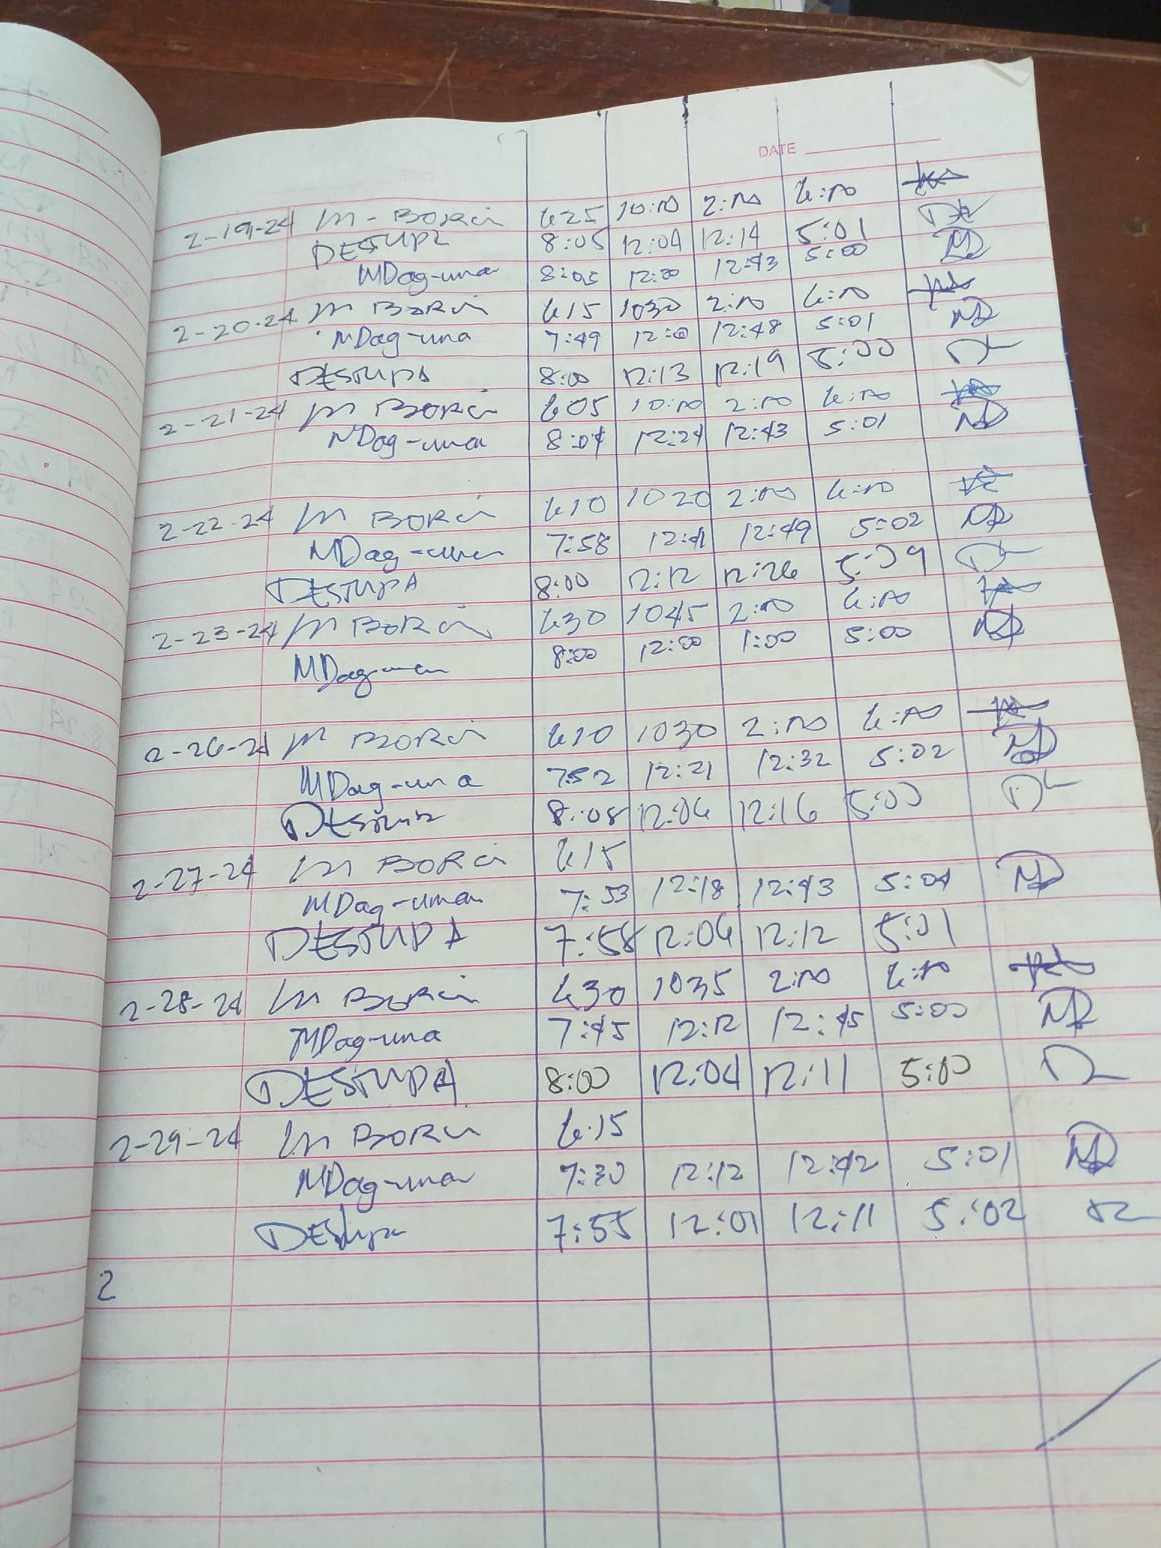 DATE
2-19-24 M-BORCI 625 10:00 2:00 6:00
DESTUPA 8:05 12:04 12:14 5:01
MDag-uma 8:05 12:20 12:43 5:00
2-20-24 M BORCI 615 1030 2:00 6:00
MDag-uma 7:49 12:48 5:01 MD
DESTUPA 8:00 12:13 12:19 5:00
2-21-24 M BORCI 605 10:00 2:00 6:00
MDag-uma 8:04 12:24 12:43 5:01 MD
2-22-24 M BORCI 610 1020 2:00 6:00
MDag-uma 7:58 12:41 12:49 5:02 MD
DESTUPA 8:00 12:12 12:26 5:09
2-23-24 M BORCI 630 1045 2:00 6:00
MDag-uma 8:00 12:50 1:00 5:00 MD
2-26-24 M BORCI 610 1030 2:00 6:00
MDag-uma 752 12:21 12:32 5:02 MD
DESTUPA 8:08 12:06 12:16 5:00
2-27-24 M BORCI 615
MDag-uma 7:53 12:18 12:43 5:04 MD
DESTUPA 7:58 12:06 12:12 5:01
2-28-24 M BORCI 630 1035 2:00 6:00
MDag-uma 7:45 12:12 12:45 5:00 MD
DESTUPA 8:00 12:04 12:11 5:00
2-29-24 M BORCI 6:15
MDag-uma 7:30 12:12 12:42 5:01 MD
DEStupa 7:55 12:01 12:11 5:02
2